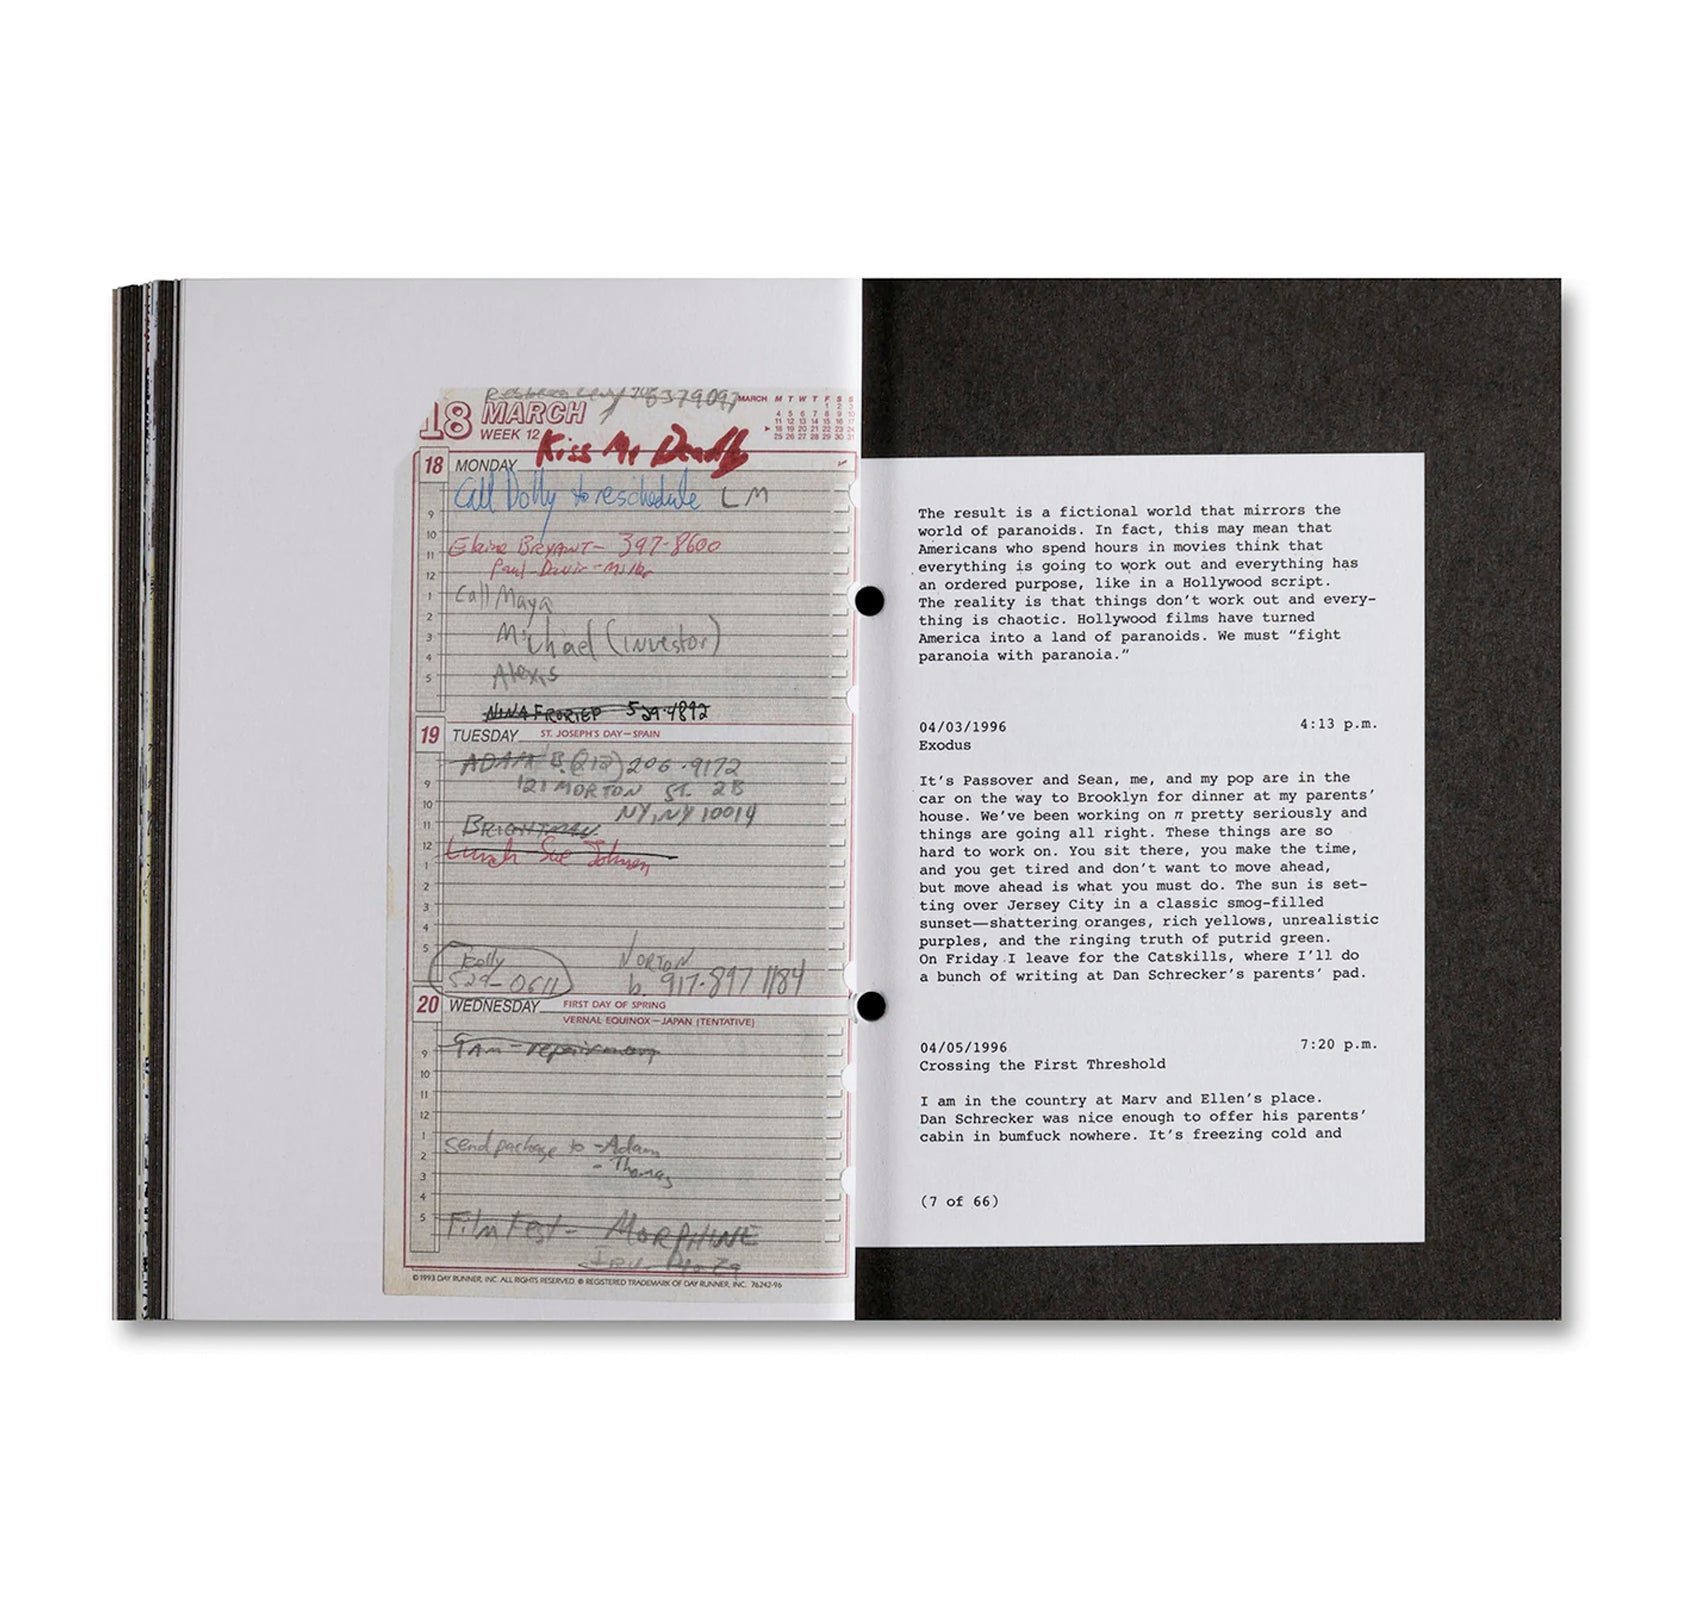 708 379 097
18 MARCH
WEEK 12
MARCH M T W T F S S
1 2 3
4 5 6 7 8 9 10
11 12 13 14 15 16 17
18 19 20 21 22 23 24
25 26 27 28 29 30 31
Kiss Me Deadly
18 MONDAY
Call Dolly to reschedule LM
9
10
11 Elaine BRYANT- 397-8600
Paul Davis - Miller
12
1 Call Maya
2
3 Michael (investor)
4
5 Alexis
NINA FRORIEP 529-4892
19 TUESDAY ST. JOSEPH'S DAY—SPAIN
ADAM B. (212) 206-9172
9 121 MORTON ST. 2B
10 NY, NY 10014
11 BRIGHTMAN
12 Lunch Sue Johnson
1
2
3
4
5 Kelly NORTON
529-0611 b. 917-897 1184
20 WEDNESDAY FIRST DAY OF SPRING
VERNAL EQUINOX—JAPAN (TENTATIVE)
9 9 Am - repairman
10
11
12
1 send package to - Adam
2 - Thomas
3
4
5 Film Fest - MORPHINE
© 1993 DAY RUNNER, INC. ALL RIGHTS RESERVED. ® REGISTERED TRADEMARK OF DAY RUNNER, INC. 76242-96
The result is a fictional world that mirrors the
world of paranoids. In fact, this may mean that
Americans who spend hours in movies think that
everything is going to work out and everything has
an ordered purpose, like in a Hollywood script.
The reality is that things don't work out and every-
thing is chaotic. Hollywood films have turned
America into a land of paranoids. We must “fight
paranoia with paranoia.”
04/03/1996 4:13 p.m.
Exodus
It's Passover and Sean, me, and my pop are in the
car on the way to Brooklyn for dinner at my parents'
house. We've been working on π pretty seriously and
things are going all right. These things are so
hard to work on. You sit there, you make the time,
and you get tired and don't want to move ahead,
but move ahead is what you must do. The sun is set-
ting over Jersey City in a classic smog-filled
sunset—shattering oranges, rich yellows, unrealistic
purples, and the ringing truth of putrid green.
On Friday I leave for the Catskills, where I'll do
a bunch of writing at Dan Schrecker's parents' pad.
04/05/1996 7:20 p.m.
Crossing the First Threshold
I am in the country at Marv and Ellen's place.
Dan Schrecker was nice enough to offer his parents'
cabin in bumfuck nowhere. It's freezing cold and
(7 of 66)